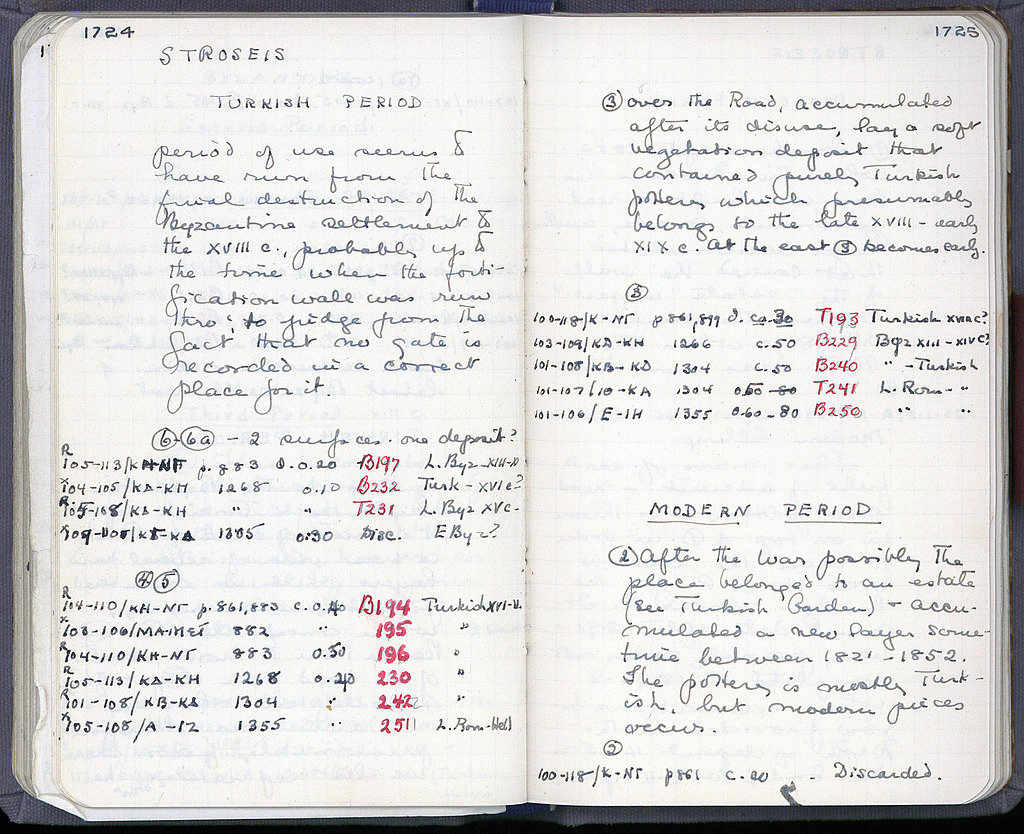 1724
STROSEIS
TURKISH PERIOD
period of use seems to
have run from the
final destruction of the
Byzantine settlement to
the XVIII c., probably up to
the time when the forti-
fication wall was run
thro: to judge from the
fact that no gate is
recorded in a correct
place for it.
⑥-⑥a - 2 surfaces. one deposit?
R 105-113/KH-NΓ p. 883 d. 0.20 B197 L. Byz-XIII-
x 104-105/KΔ-KH 1268 0.10 B232 Turk-XVI c?
R 105-108/KΔ-KH " " T231 L. Byz XV c.
1385 0.30 Disc. E Byz?
④⑤
R 104-110/KH-NΓ p. 861,883 c. 0.40 B194 Turkish XVI-
x 103-106/MA-MEΓ 882 " 195 "
R 104-110/KH-NΓ 883 0.50 196 "
R 105-113/KΔ-KH 1268 0.20 230 "
R 101-108/KB-KΔ 1304 : 242 "
x 105-108/A-IZ 1355 " 251 L. Rom-Hell
1725
③ over the Road, accumulated
after its disuse, lay a soft
vegetation deposit that
contained purely Turkish
pottery which presumably
belongs to the late XVIII - early
XIX c. At the east ③ becomes early.
③
100-118/K-NΓ p 861,899 d. ca. 30 T193 Turkish XVIII c?
103-109/KΔ-KH 1266 c. 50 B229 Byz XIII-XIV c?
101-108/KB-KΔ 1304 c. 50 B240 " - Turkish
101-107/10-KA 1304 0.50-80 T241 L. Rom- "
101-106/E-IH 1355 0.60-80 B250 " "
MODERN PERIOD
② After the war possibly the
place belonged to an estate
(see Turkish Garden) - accu-
mulated a new layer some-
time between 1821-1852.
The pottery is mostly Turk-
ish, but modern pieces
occur.
②
100-118/K-NΓ p861 c. 20 Discarded.